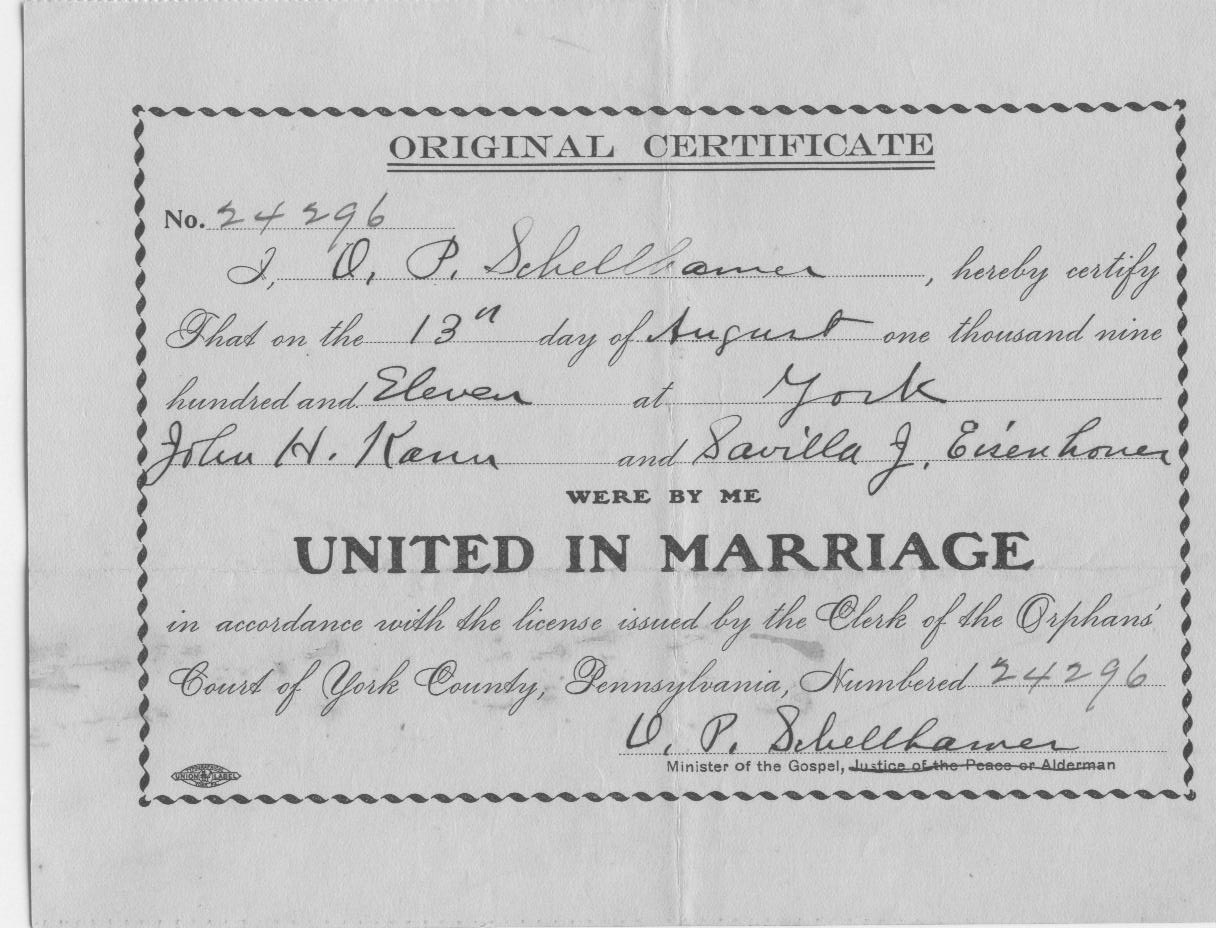 ORIGINAL CERTIFICATE
No. 24296
I, O. P. Schellhamer, hereby certify
That on the 13th day of August one thousand nine
hundred and Eleven at York
John H. Kann and Savilla J. Eisenhower
WERE BY ME
UNITED IN MARRIAGE
in accordance with the license issued by the Clerk of the Orphans'
Court of York County, Pennsylvania, Numbered 24296
O. P. Schellhamer
Minister of the Gospel, Justice of the Peace or Alderman
UNION LABEL